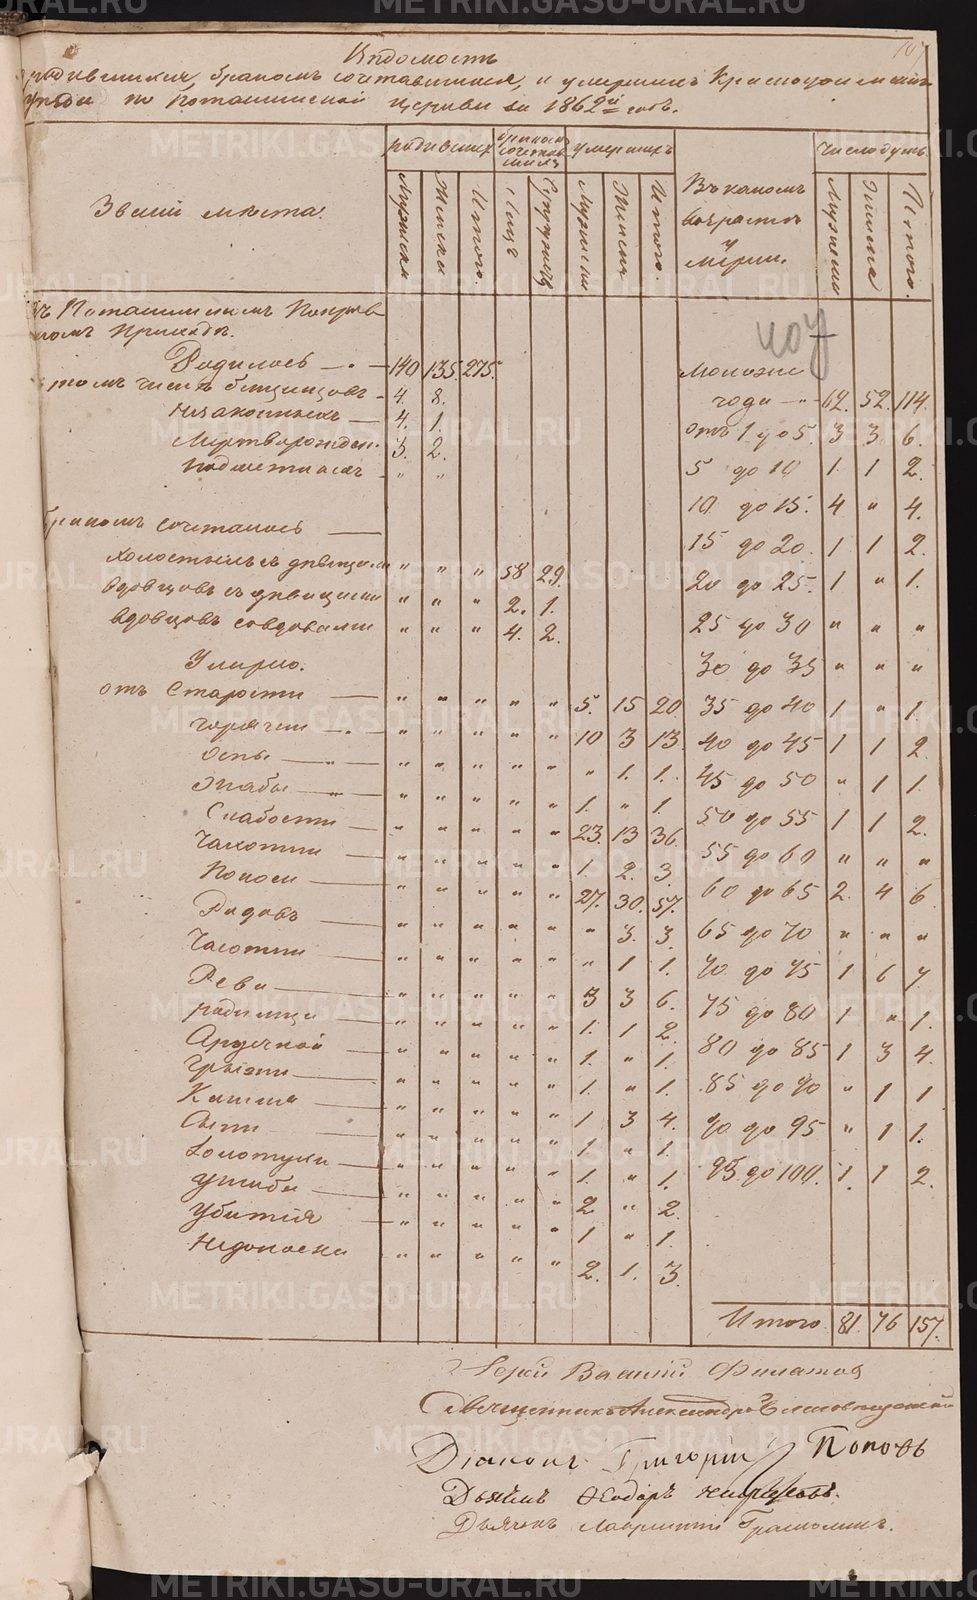 Ведомость
родившихся бракомъ сочетавшихся, и умершихъ Красноуфимскаго
уезда по Поташинской церкви за 1862й годъ.
Званiй места.
родивших
бракомъ сочетавшихъ
умершихъ
Въ какомъ возрасте умерли.
Число душъ
Мужески Женски Итого. Лицъ Супружъ Мужески Женск Итого Мужески Женска Итого.
Поташинскомъ Покров
Приходе.
407
Родилось 140 135 275.
томъ числе близнецовъ 4. 8.
Незаконныхъ 4. 1.
Мертворожден. 3. 2.
Подметиласъ " "
Бракомъ сочеталось
холостыхъ съ девицами " " " 58 29.
вдовцовъ съ девицами " " " 2. 1.
вдовцовъ совдовами " " " 4. 2.
Умерло.
отъ Старости " " " " " 5. 15 20
горячки " " " " " 10 3 13.
Оспы " " " " " " 1. 1.
" " " " " 1. " 1.
Слабости " " " " " 23. 13 36.
Чахотки " " " " " 1. 2. 3.
Поноса " " " " " 27. 30. 57.
Родовъ " " " " " " 3. 3.
" " " " " " 1 1.
" " " " " 3 3 6.
родимца " " " " " 1. 1 2.
" " " " " 1. " 1.
Грыжи " " " " " 1. " 1.
Кашля " " " " " 1 3 4.
" " " " " 1. " 1.
Золотухи " " " " " 1. " 1.
Ушиба " " " " " 2. " 2.
Убитiя " " " " " 1 " 1.
Недоноски " " " " " 2. 1. 3.
моложе
года 62. 52. 114.
отъ 1 до 5. 3 3. 6.
5 до 10 1. 1 2.
10. до 15. 4 " 4.
15 до 20. 1 1 2.
20 до 25. 1 " 1.
25 до 30 " " "
30 до 35 " " "
35 до 40 1 " 1.
40 до 45 1 1 2.
45 до 50 " 1 1.
50 до 55 1 1 2.
55 до 60 " " "
60 до 65 2. 4 6
65 до 70 " " "
70. до 75 1 6 7
75 до 80 1 " 1.
80 до 85 1 3 4.
85 до 90 " 1 1
90 до 95 " 1 1.
95 до 100. 1. 1 2.
Итого 81. 76 157.
Iерей Василiй Филатов
Священникъ Александръ
Дiаконъ Григорiй Поповъ
Дьячекъ Феодоръ
Дьячекъ
METRIKI.GASO-URAL.RU